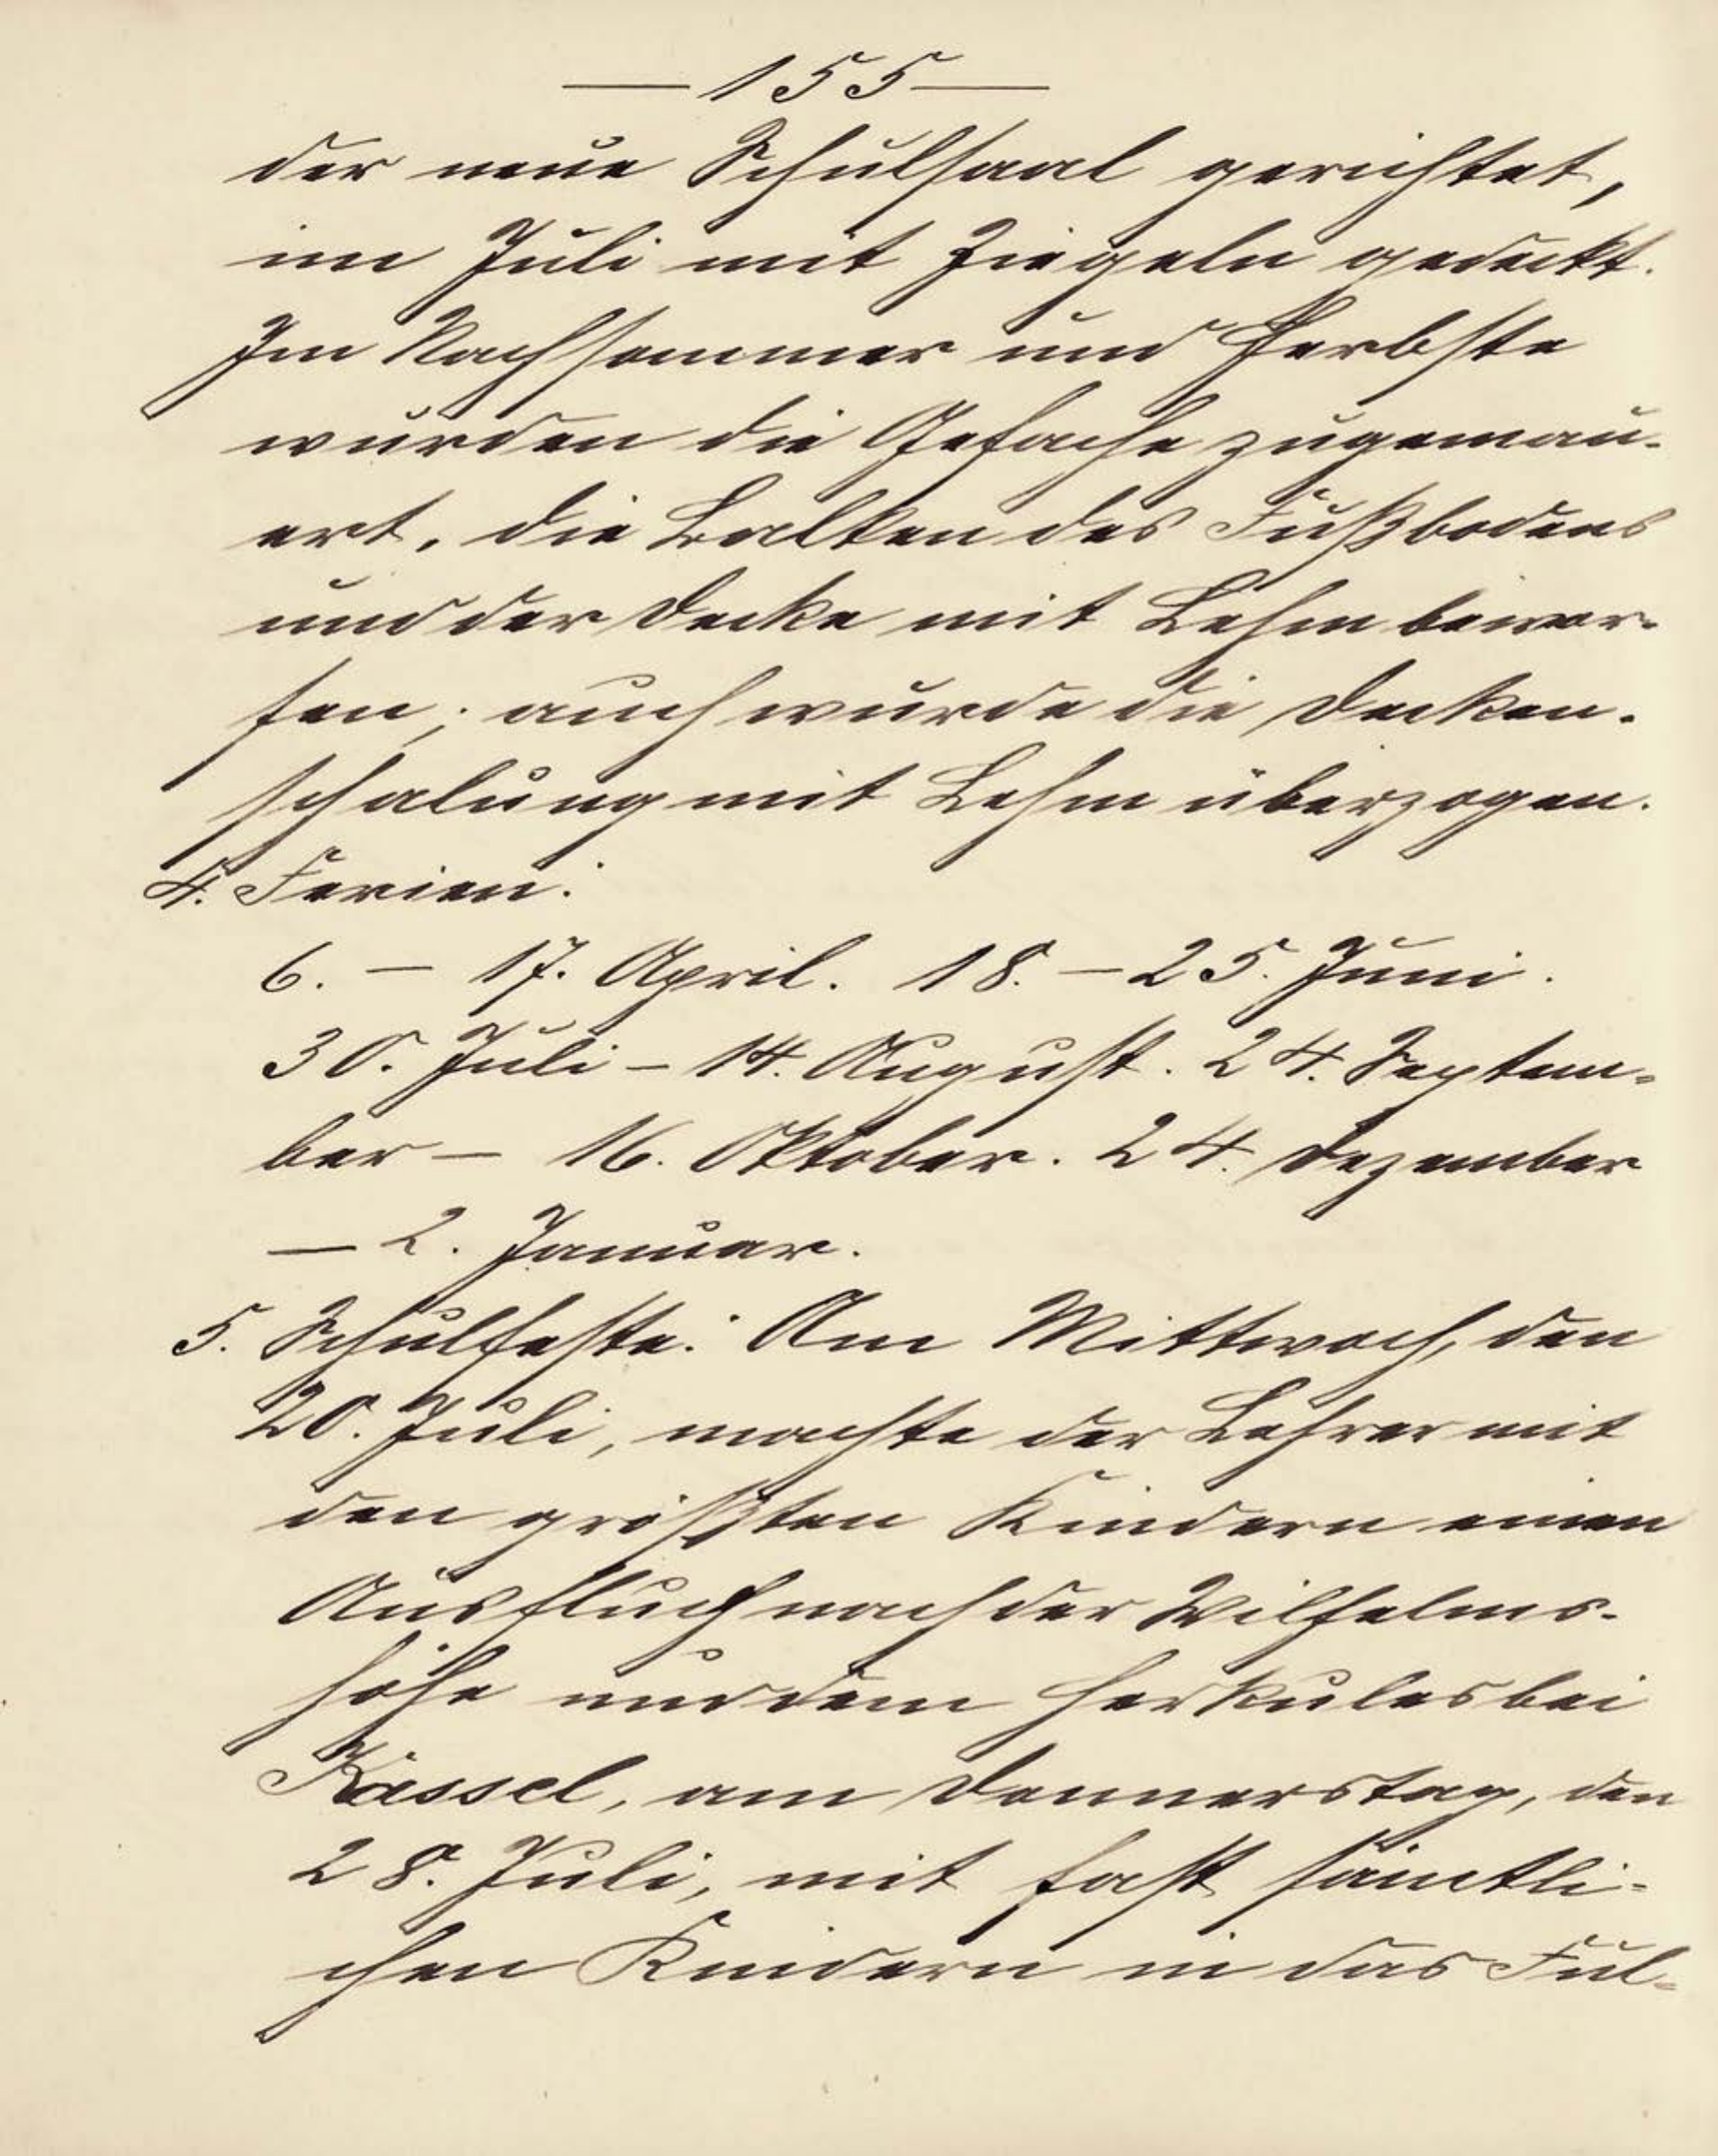 — 155 —
der neue Schulsaal gerichtet,
im Juli mit Ziegeln gedeckt.
Im Nachsommer und Herbste
wurden die Gefache zugemau-
ert, die Balken des Fußbodens
und der Decke mit Lehm bewor-
fen; auch wurde die Decken-
schalung mit Lehm überzogen.
4. Ferien:
6. – 17. April. 18. – 25. Juni.
30. Juli – 14. August. 24. Septem-
ber – 16. Oktober. 24. Dezember
– 2. Januar.
5. Schulfeste: Am Mittwoch, den
20. Juli, machte der Lehrer mit
den größten Kindern einen
Ausfluch nach der Wilhelms-
höhe und dem Herkules bei
Kassel, am Donnerstag, den
28. Juli, mit fast sämtli-
chen Kindern in das Ful-